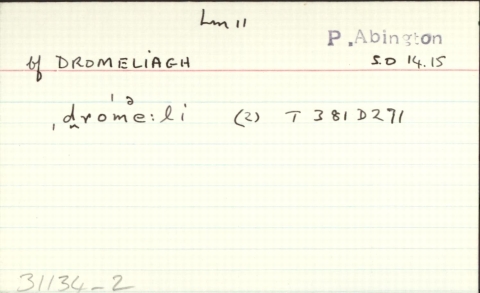 Lm 11
P. Abington
bf DROMELIAGH S.D 14.15
ˌd̪rome:li (2) T 381D271
ˈə
31134-2